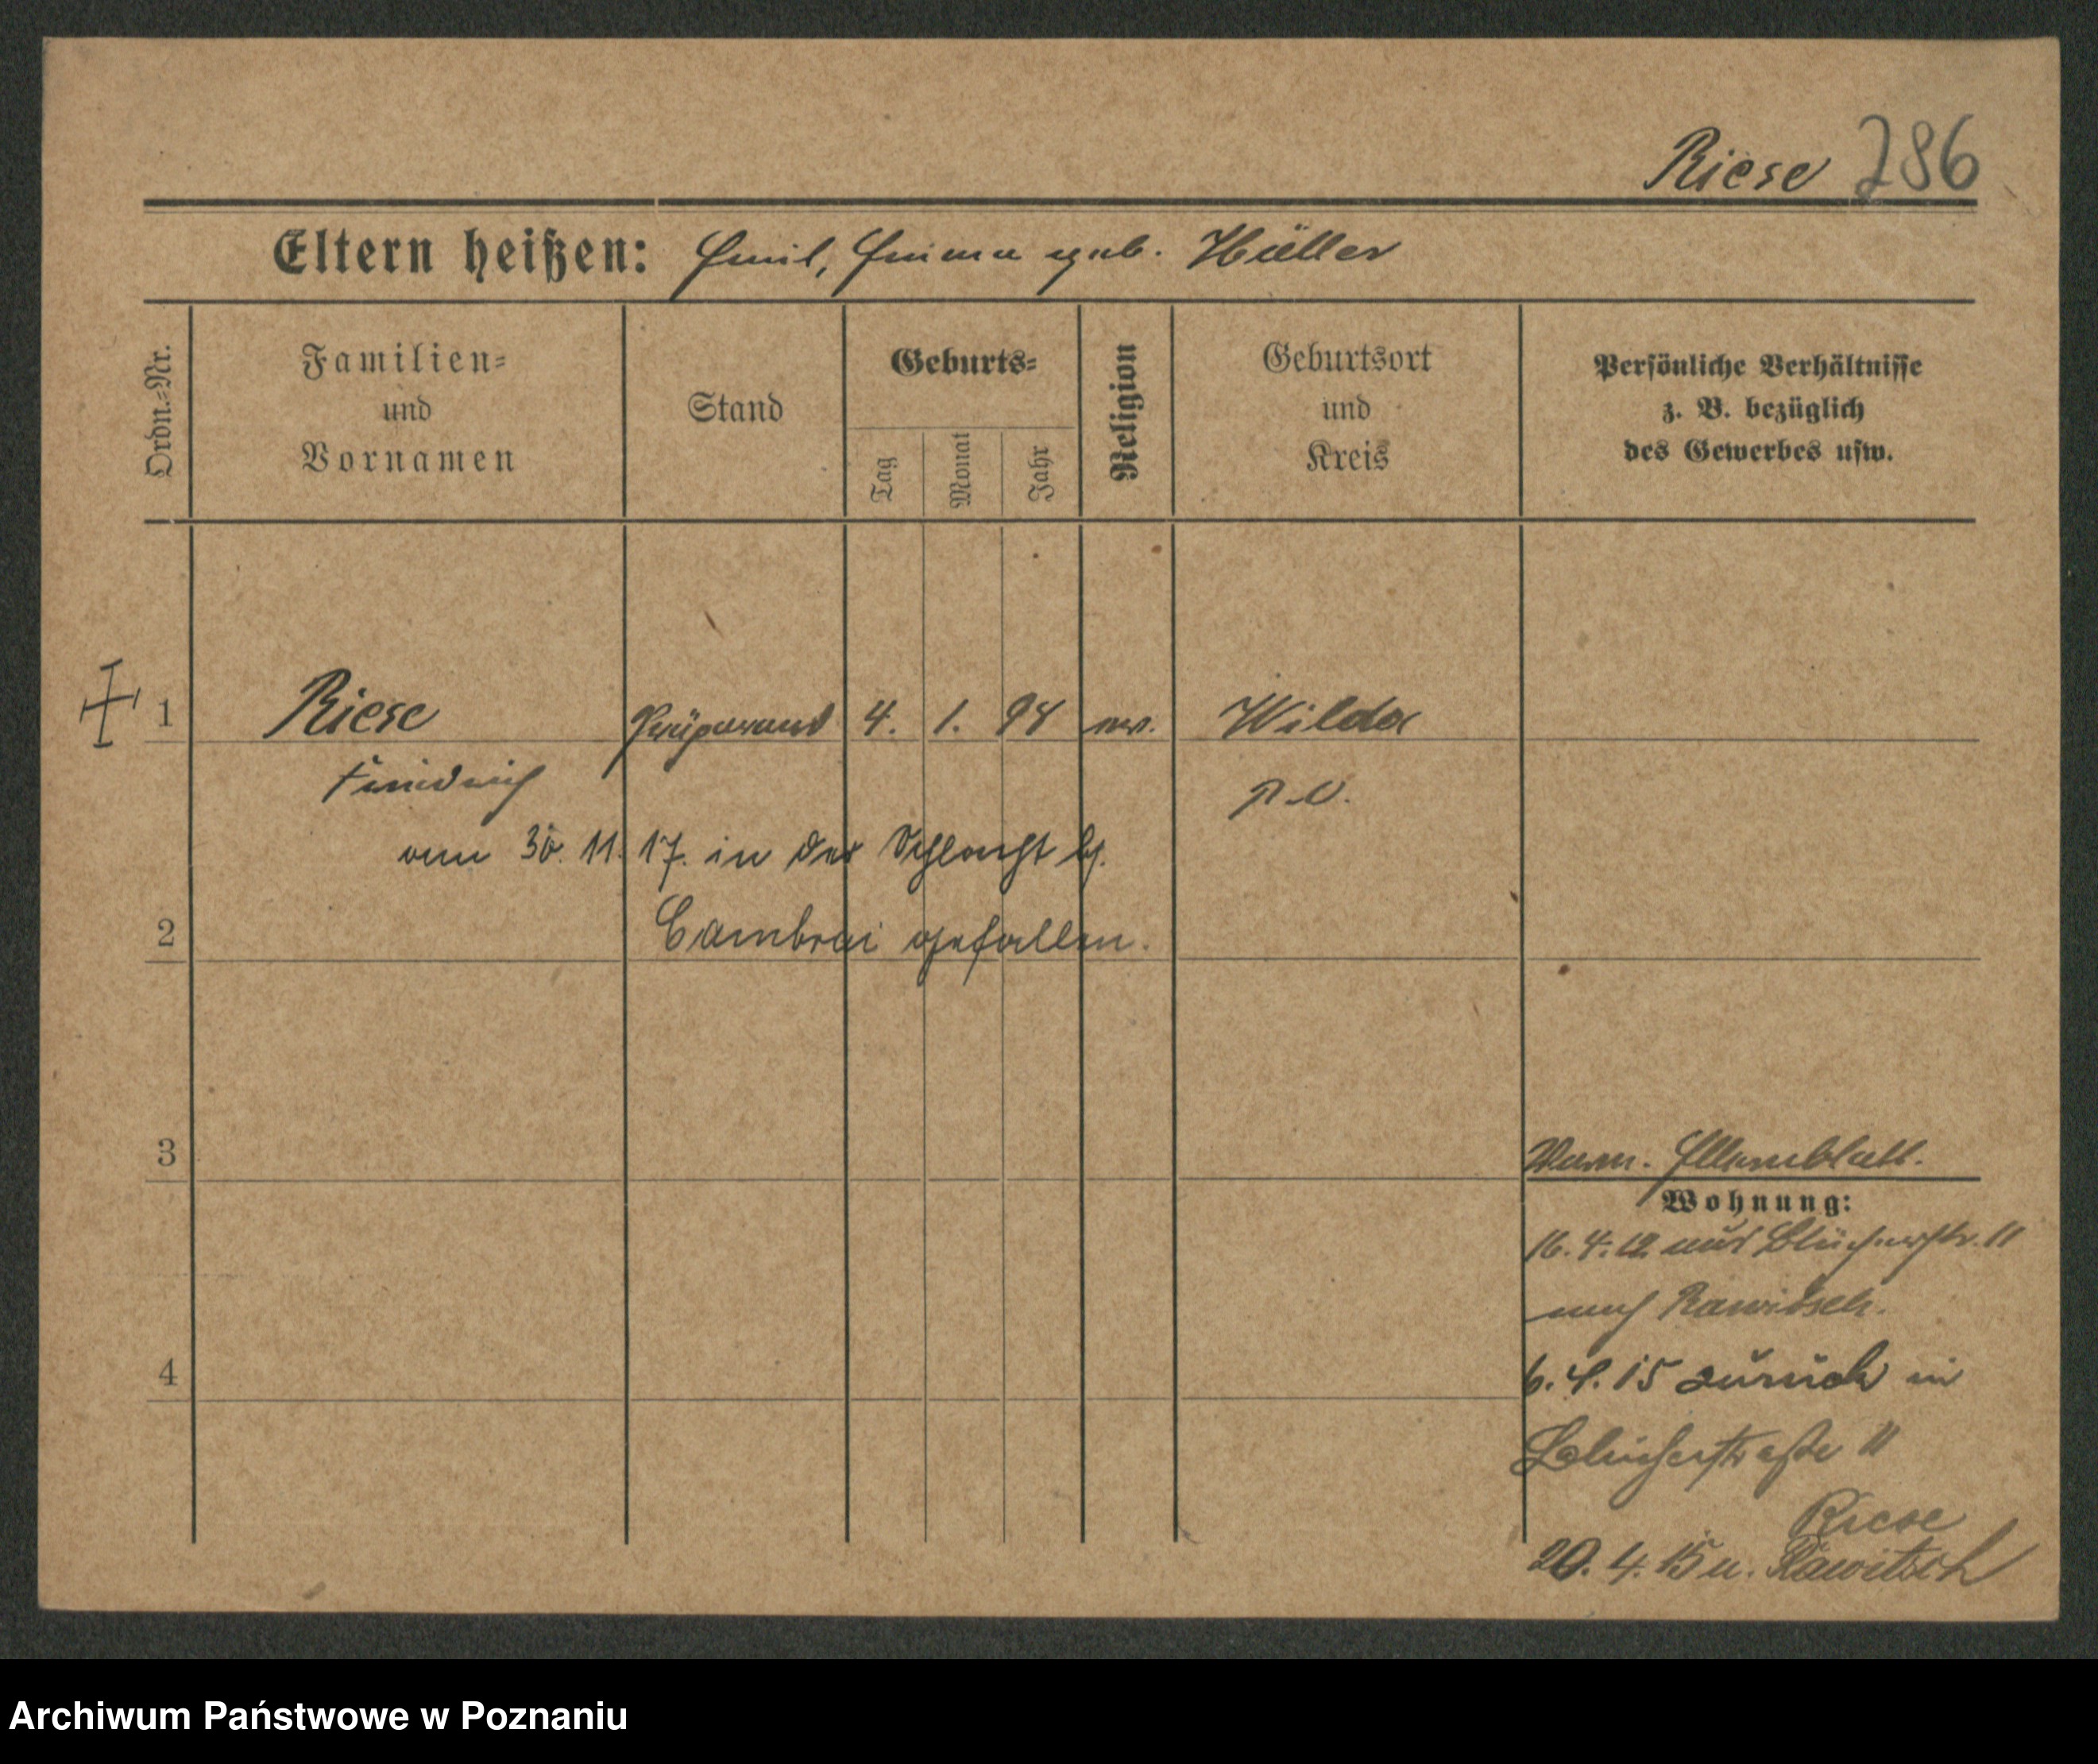 Riese 286
Eltern heißen: Emil, Emma geb. Hüller
Ordn.-Nr.
Familien-
und
Vornamen
Stand
Geburts-
Tag
Monat
Jahr
Religion
Geburtsort
und
Kreis
Persönliche Verhältnisse
z. B. bezüglich
des Gewerbes usw.
1 Riese Präparand 4. 1. 98 ev. Wilda
Friedrich P.O.
am 30. 11. 17. in der Schlacht b.
Cambrai gefallen.
2
3
Elternblatt.
Wohnung:
16. 4. 12 aus Blücherstr. 11
nach Rawitsch.
4
6. 4. 15 zurück in
Blücherstraße 11
Riese
20. 4. 15 n. Rawitsch
Archiwum Państwowe w Poznaniu